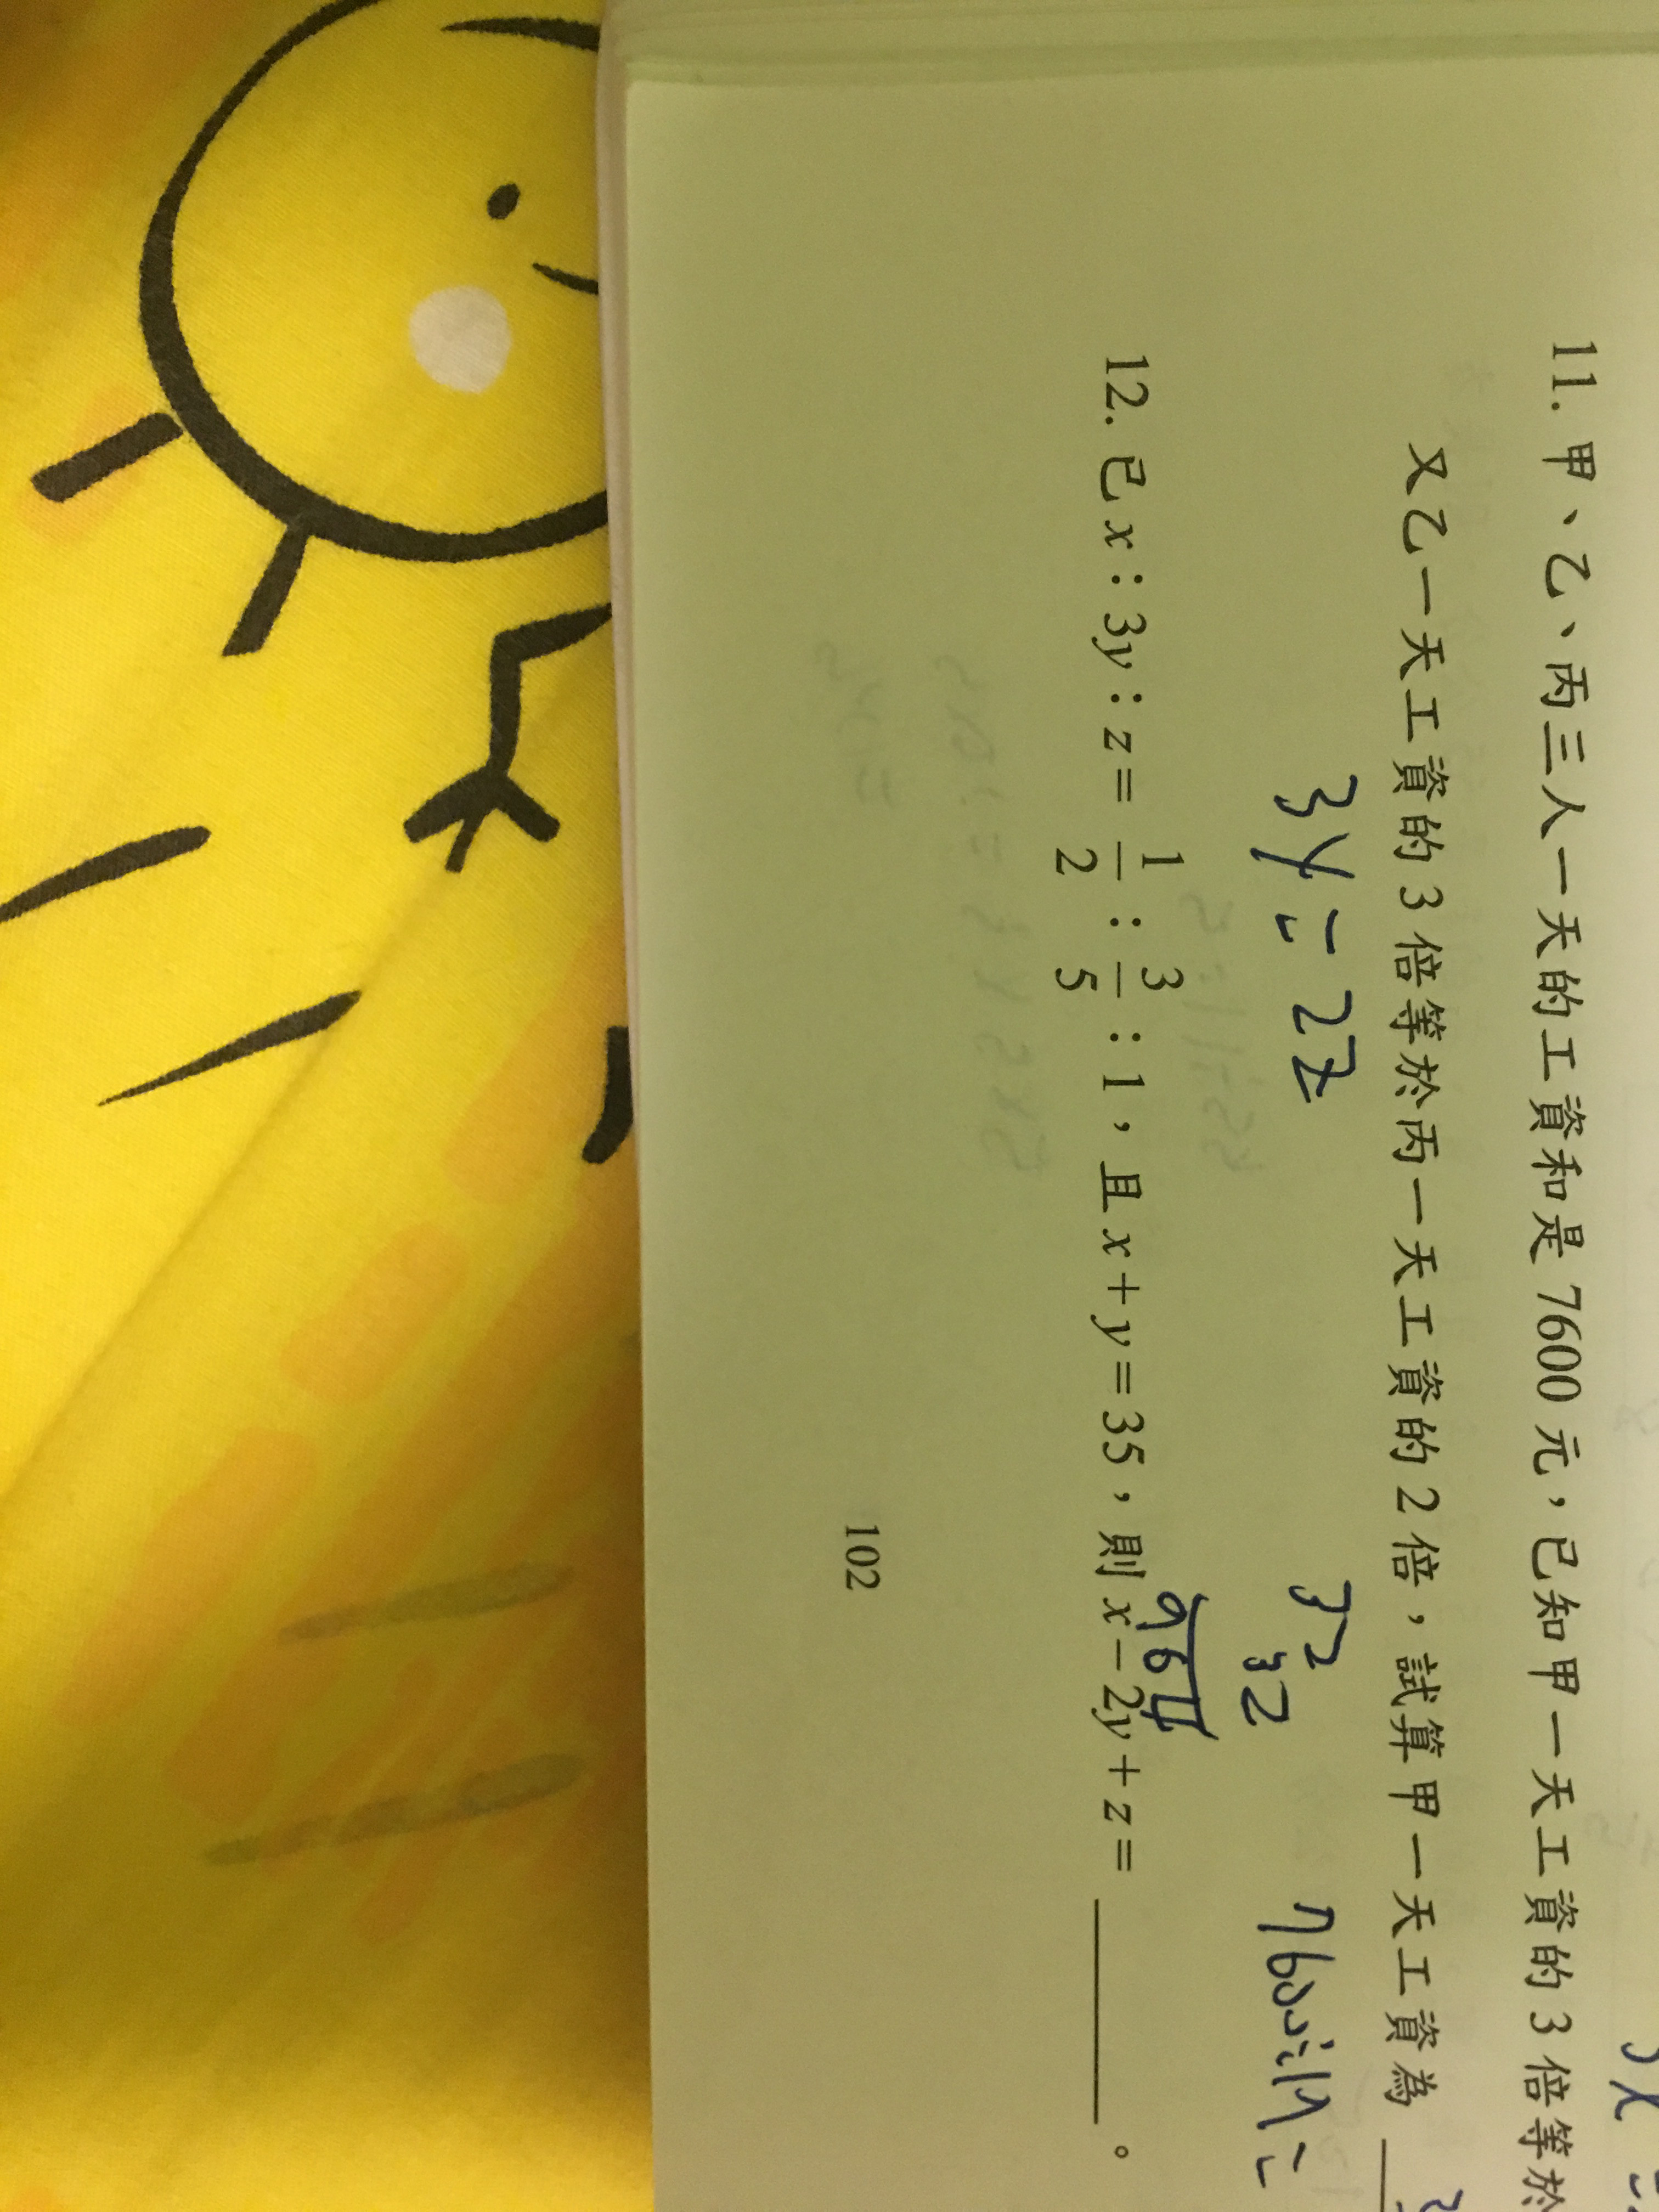 11. 甲、乙、丙三人一天的工資和是 7600 元，已知甲一天工資的 3 倍等於
又乙一天工資的 3 倍等於丙一天工資的 2 倍，試算甲一天工資為
3y = 2z
32
32
964
12. 已 x : 3y : z = 1/2 : 3/5 : 1，且 x + y = 35，則 x − 2y + z = ______ 。
102